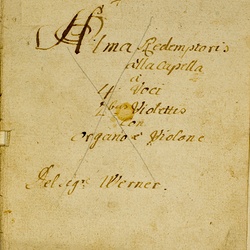 Alma Redemptoris
alla Capella
à
4 Voci
2bus Violettis
con
Organo è Violone
Del sigr Werner.